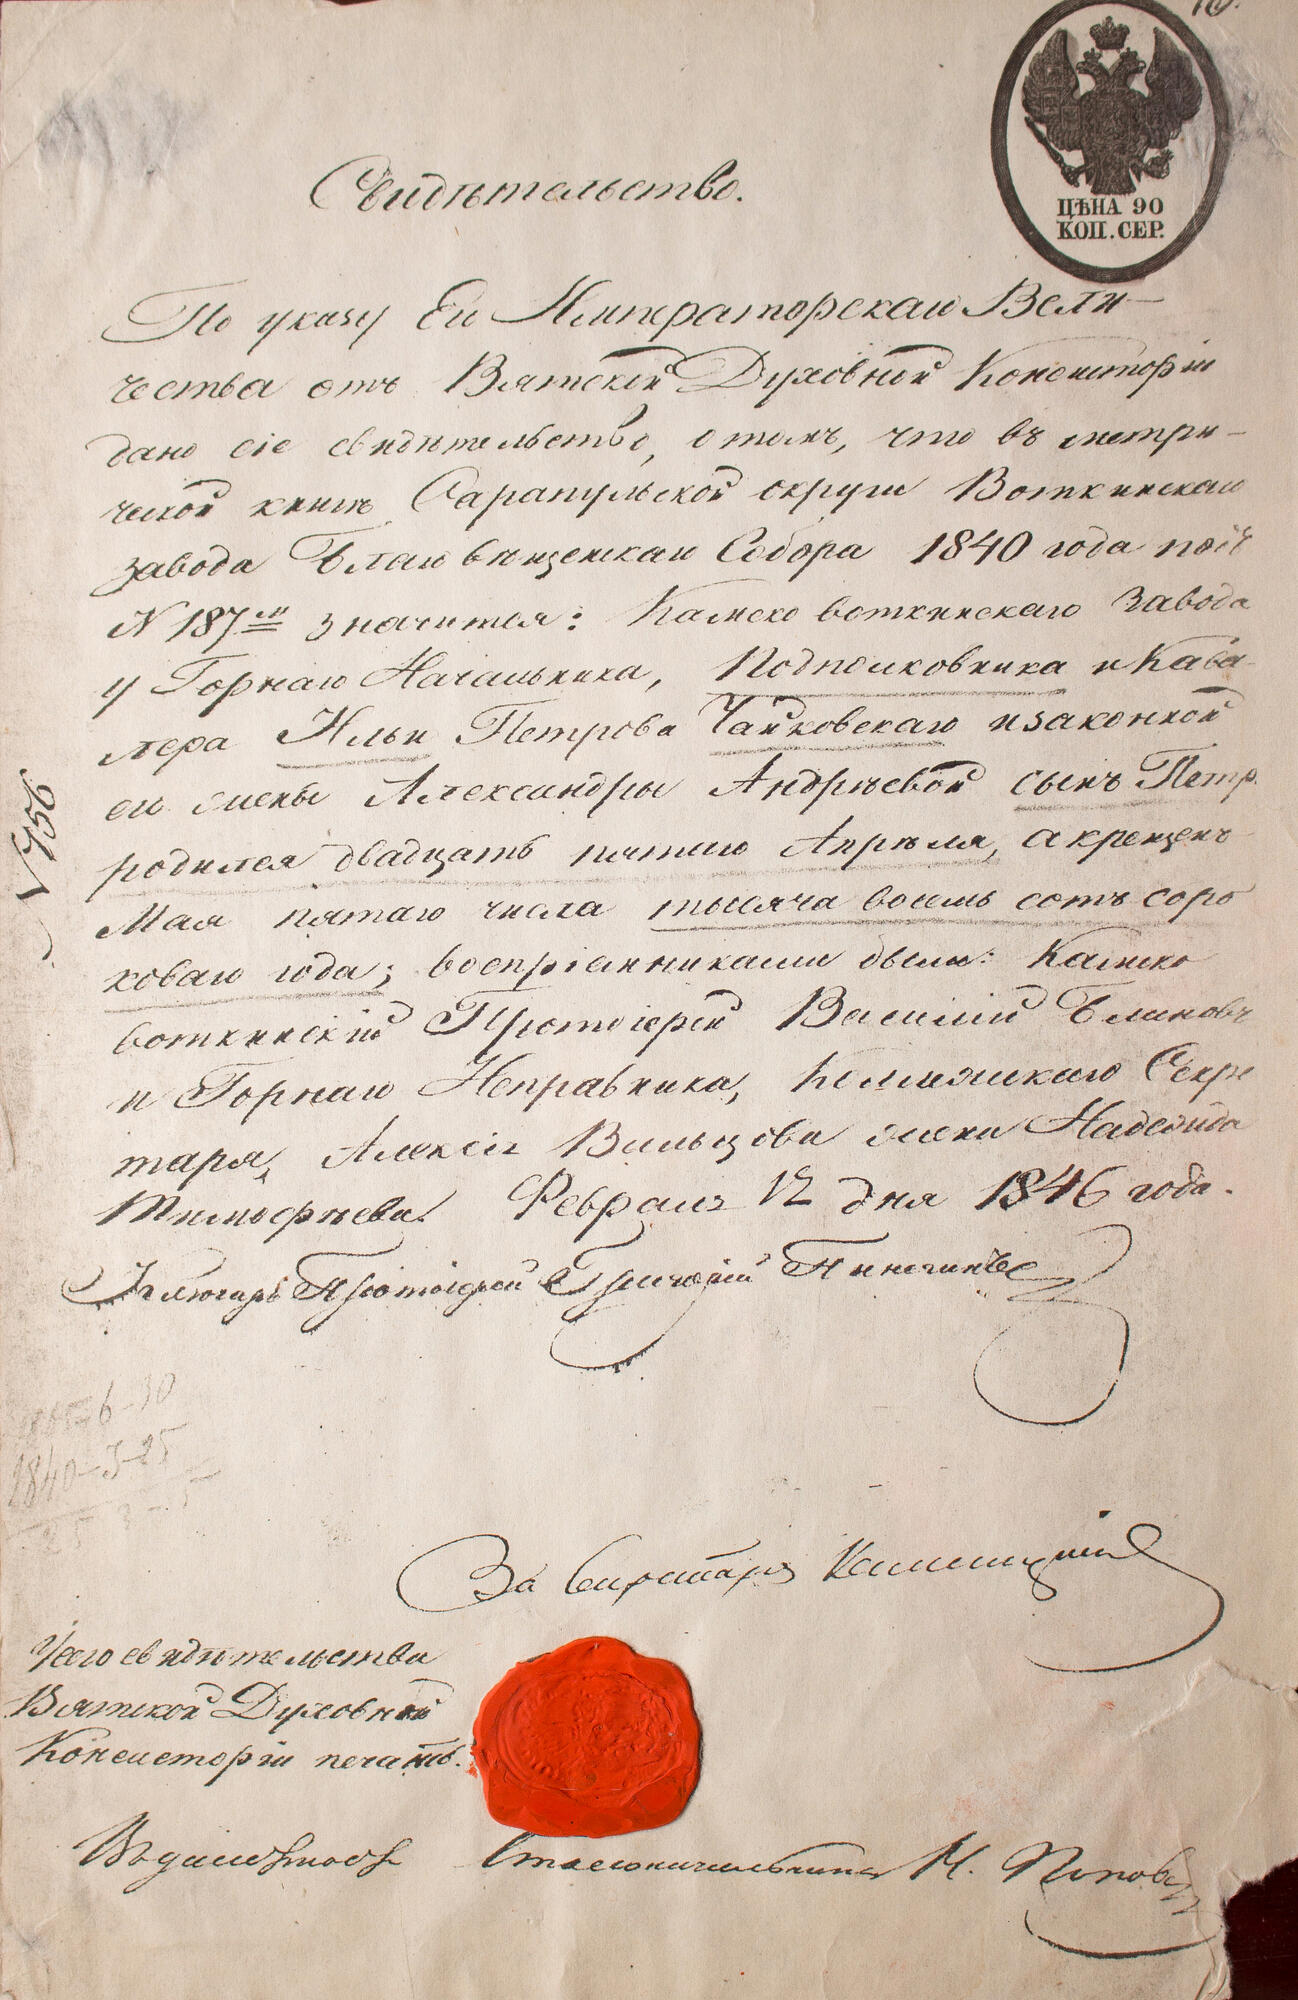 ЦѢНА 90
КОП. СЕР.
Свидѣтельство.
По указу Его Императорскаго Вели-
чества отъ Вятской Духовной Консисторіи
дано сіе свидѣтельство, о томъ, что въ метри-
ческой книгѣ Сарапульской округи Воткинскаго
завода Благовѣщенскаго Собора 1840 года подъ
N 187м значится: Камско воткинскаго завода
у Горнаго Начальника, Подполковника и Кава-
лера Ильи Петрова Чайковскаго и законной
его жены Александры Андрѣевой сынъ Петръ
родился двадцать пятаго Апрѣля, а крещенъ
Мая пятаго числа тысяча восемь сотъ соро
коваго года; воспріемниками были: Камско
воткинскій Протоіерей Василій Блиновъ
и Горнаго Исправника, Коллежскаго Секре
таря, Алексѣя Вальцова жена Надежда
Тимофѣева. Февраля 12 дня 1846 года.
Ключарь Протоіерей
N 756
1840-
За Секретаря
У сего свидѣтельства
Вятской Духовной
Консисторіи печать.
Въ должности Столоначальника Н. Поповъ